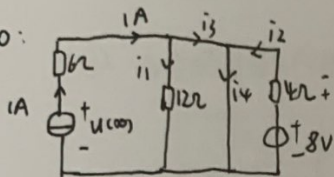 0:
1A
i3
i2
6Ω
i1
i4
12Ω
4Ω
+
-
1A
+
u(∞)
-
+
-8V